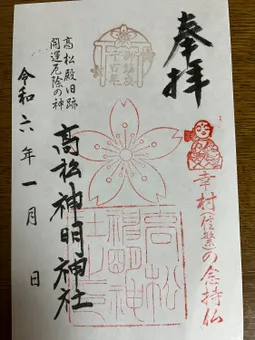 奉拝
幸村(信繁)の念持仏
高松神明神社
高松殿旧跡
開運厄除の神
令和六年一月 日